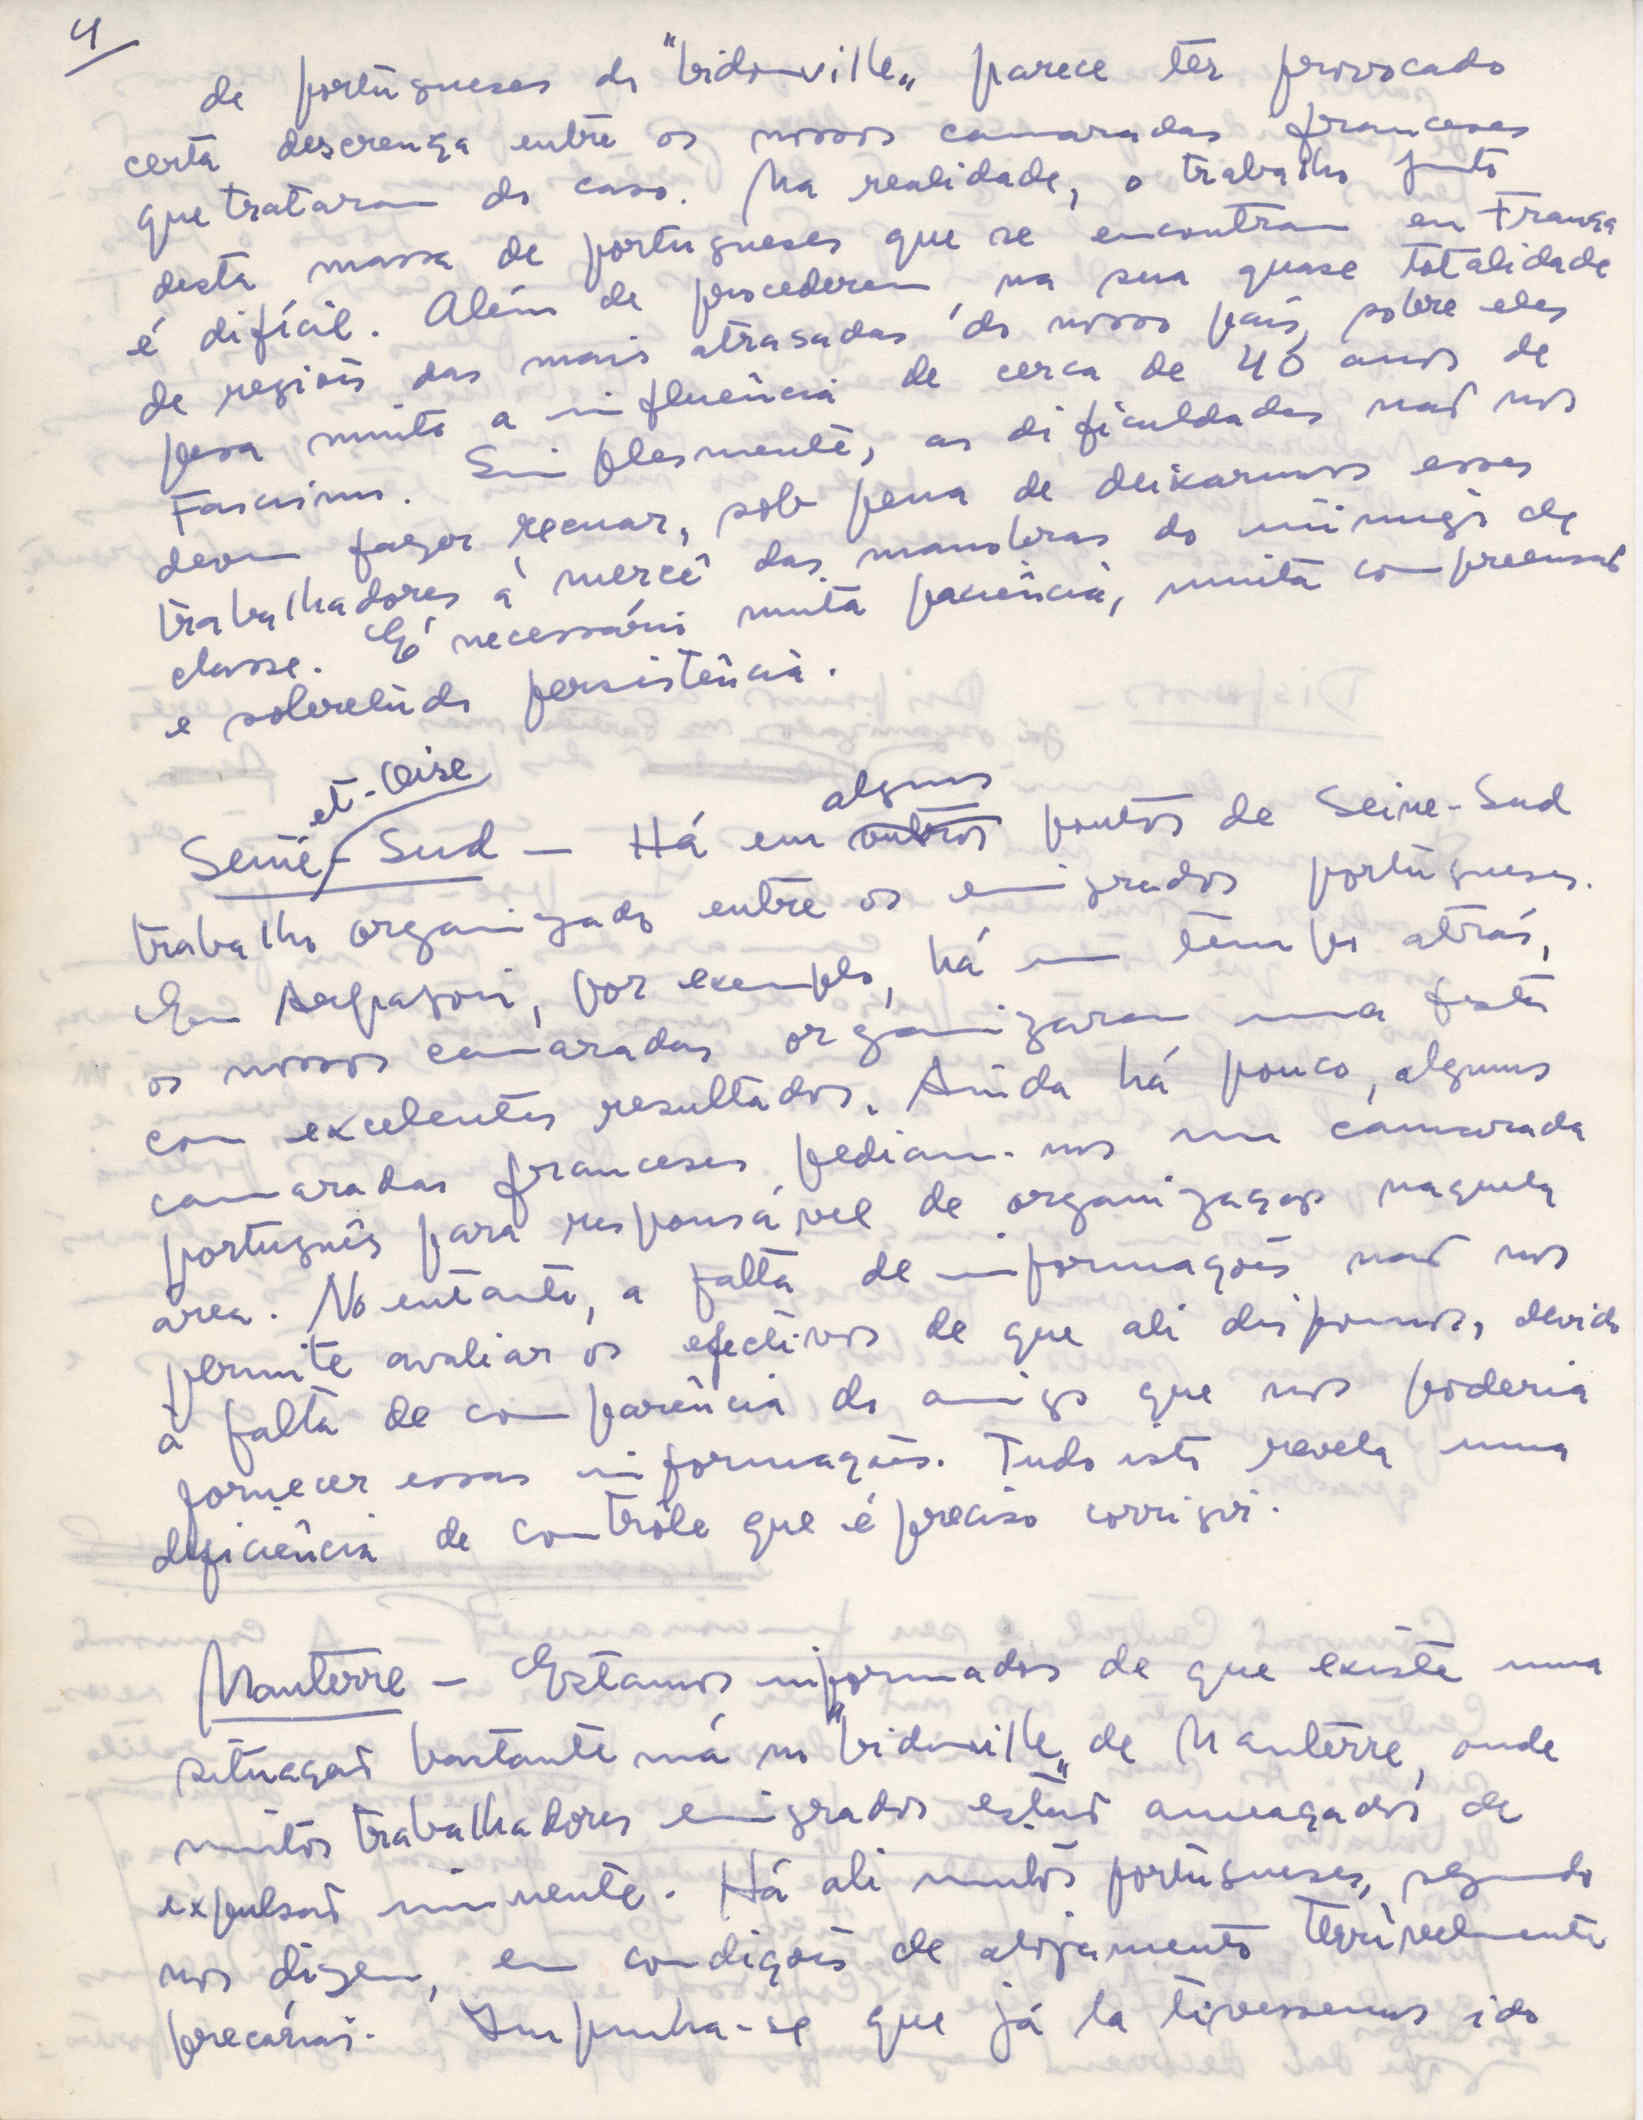 4
de portugueses do "bidonville" parece ter provocado
certa descrença entre os nossos camaradas franceses
que trataram do caso. Na realidade, o trabalho junto
desta massa de portugueses que se encontram em França
é difícil. Além de procederem na sua quase totalidade
de regiões das mais atrasadas do nosso país, sobre eles
pesa muito a influência de cerca de 40 anos de
Fascismo. Simplesmente, as dificuldades não nos
devem fazer recuar, sob pena de deixarmos esses
trabalhadores à mercê das manobras do inimigo de
classe. É necessário muita paciência, muita compreensão
e sobretudo persistência.
et-Oise
alguns
Seine-Sud — Há em outros pontos de Seine-Sud
trabalho organizado entre os emigrados portugueses.
Em Arpajon, por exemplo, há um tempo atrás,
os nossos camaradas organizaram uma festa
com excelentes resultados. Ainda há pouco, alguns
camaradas franceses pediam-nos um camarada
português para responsável de organização naquela
área. No entanto, a falta de informações não nos
permite avaliar os efectivos de que ali dispomos, devido
à falta de comparência do amigo que nos poderia
fornecer essas informações. Tudo isto revela uma
deficiência de contrôle que é preciso corrigir.
Nanterre — Estamos informados de que existe uma
situação bastante má no "bidonville" de Nanterre, onde
muitos trabalhadores emigrados estão ameaçados de
expulsão iminente. Há ali muitos portugueses, segundo
nos dizem, em condições de alojamento terrivelmente
precárias. Impunha-se que já la tivessemos ido